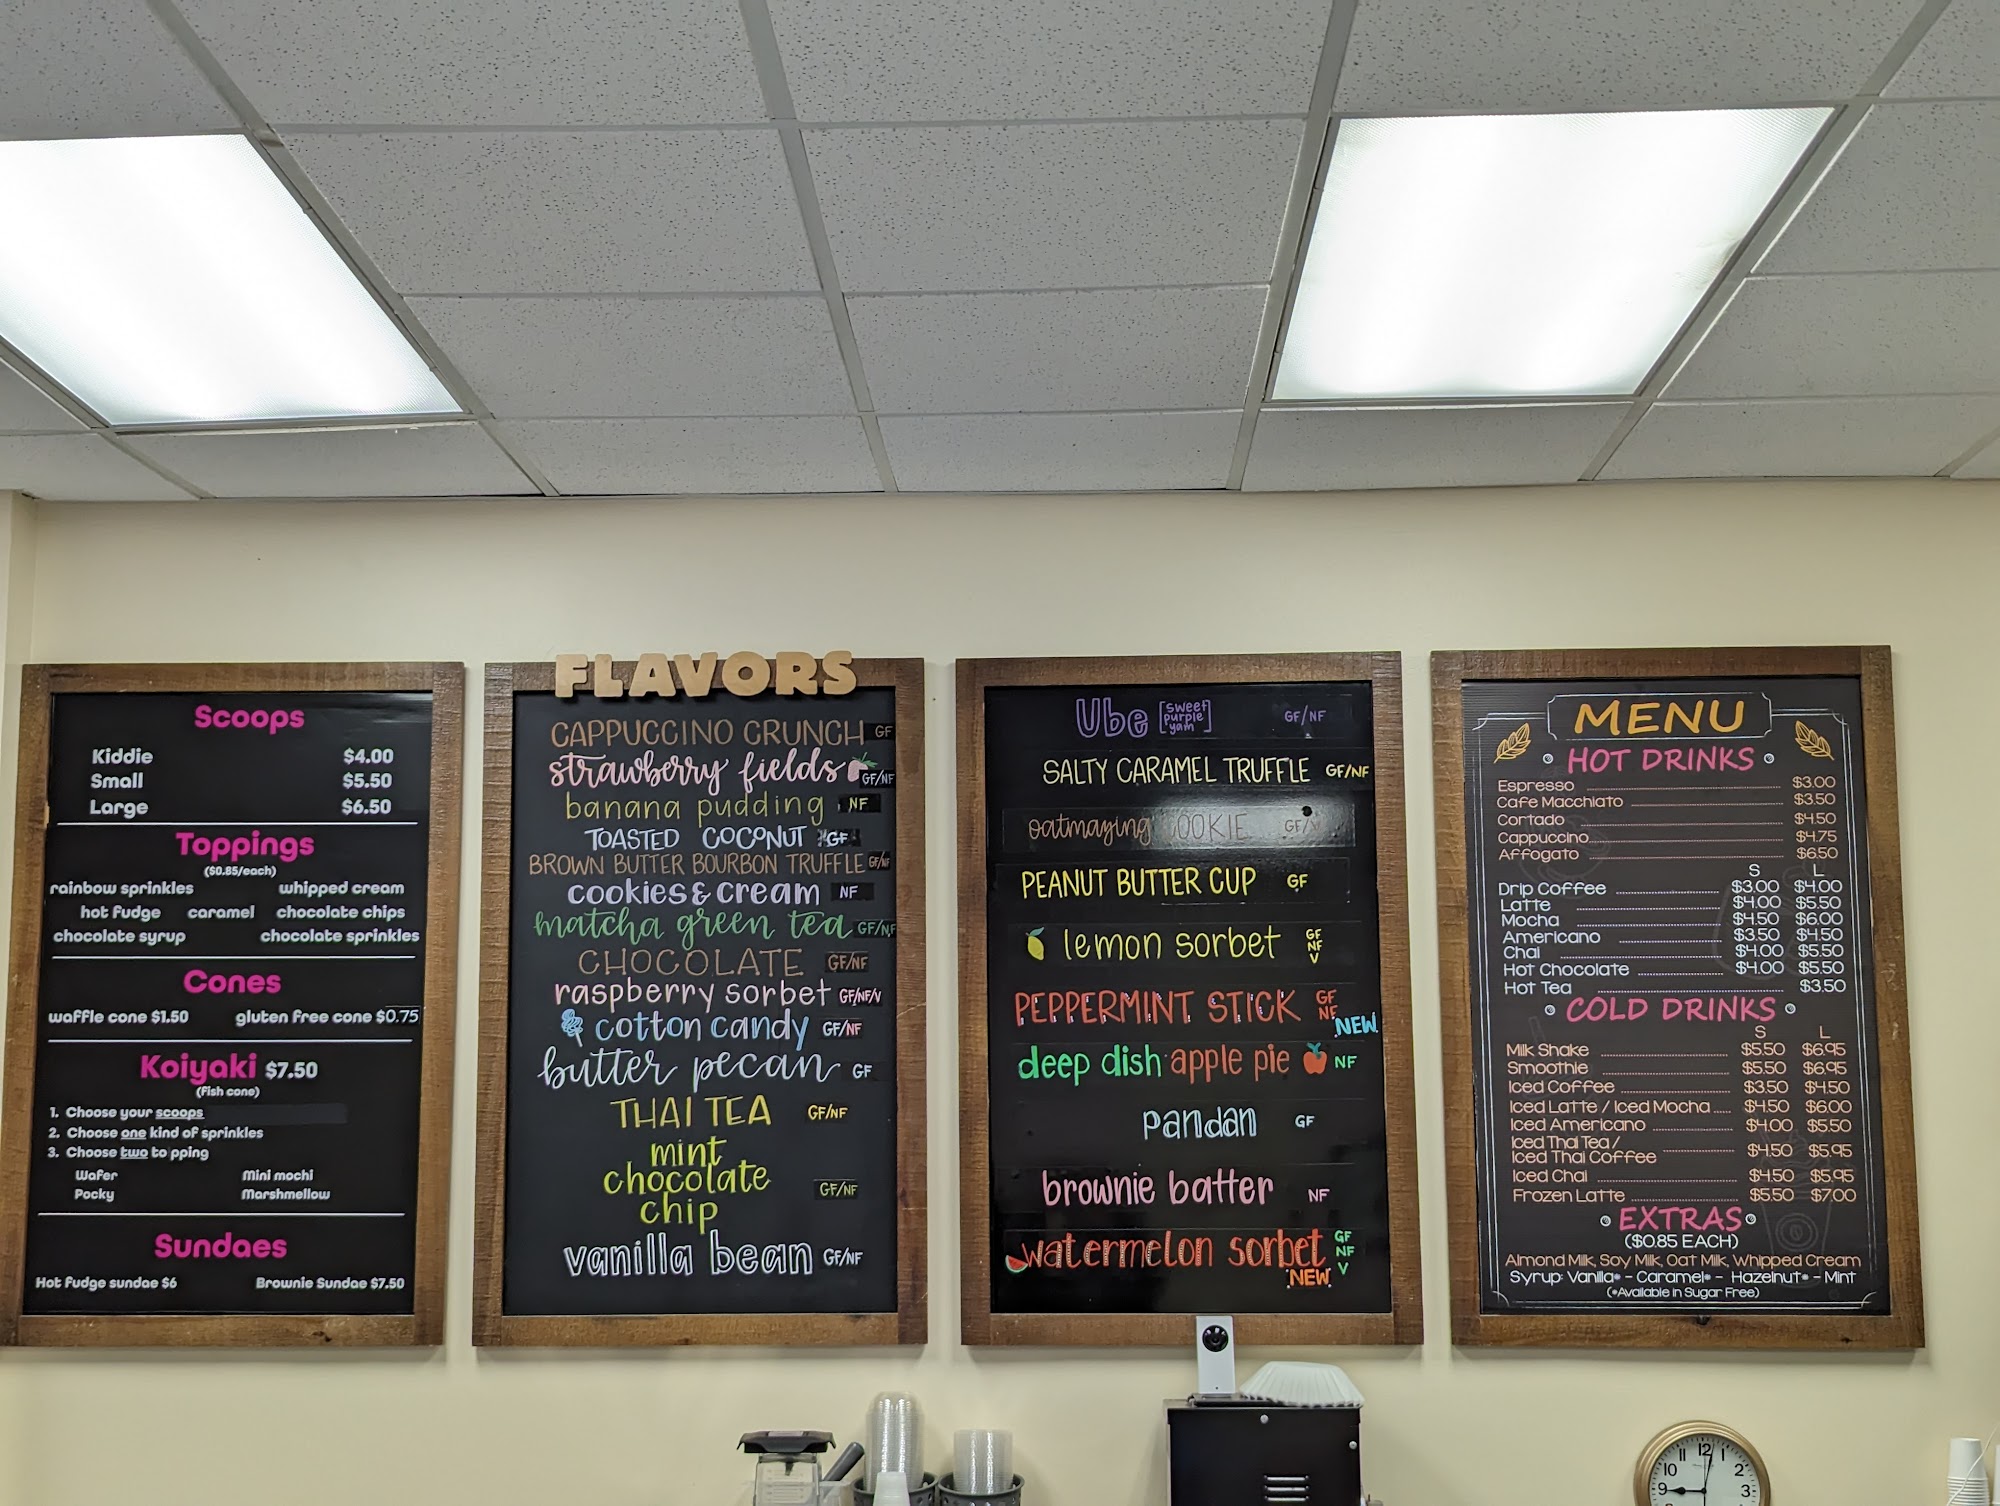 Scoops
Kiddie $4.00
Small $5.50
Large $6.50
Toppings
($0.85/each)
rainbow sprinkles whipped cream
hot fudge caramel chocolate chips
chocolate syrup chocolate sprinkles
Cones
waffle cone $1.50 gluten free cone $0.75
Koiyaki $7.50
(Fish cone)
1. Choose your scoops
2. Choose one kind of sprinkles
3. Choose two to pping
Wafer Mini mochi
Pocky Marshmellow
Sundaes
Hot Fudge sundae $6 Brownie Sundae $7.50
FLAVORS
CAPPUCCINO CRUNCH GF
strawberry fields GF/NF
banana pudding NF
TOASTED COCONUT GF
BROWN BUTTER BOURBON TRUFFLE GF/NF
cookies & cream NF
matcha green tea GF/NF
CHOCOLATE GF/NF
raspberry sorbet GF/NF/V
cotton candy GF/NF
butter pecan GF
THAI TEA GF/NF
mint
chocolate
chip GF/NF
vanilla bean GF/NF
Ube [sweet purple yam] GF/NF
SALTY CARAMEL TRUFFLE GF/NF
oatmazing COOKIE GF/V
PEANUT BUTTER CUP GF
lemon sorbet GF NF V
PEPPERMINT STICK GF NF
NEW
deep dish apple pie NF
pandan GF
brownie batter NF
watermelon sorbet GF NF V
NEW
MENU
HOT DRINKS
Espresso $3.00
Cafe Macchiato $3.50
Cortado $4.50
Cappuccino $4.75
Affogato $6.50
S L
Drip Coffee $3.00 $4.00
Latte $4.00 $5.50
Mocha $4.50 $6.00
Americano $3.50 $4.50
Chai $4.00 $5.50
Hot Chocolate $4.00 $5.50
Hot Tea $3.50
COLD DRINKS
S L
Milk Shake $5.50 $6.95
Smoothie $5.50 $6.95
Iced Coffee $3.50 $4.50
Iced Latte / Iced Mocha $4.50 $6.00
Iced Americano $4.00 $5.50
Iced Thai Tea /
Iced Thai Coffee $4.50 $5.95
Iced Chai $4.50 $5.95
Frozen Latte $5.50 $7.00
EXTRAS
($0.85 EACH)
Almond Milk, Soy Milk, Oat Milk, Whipped Cream
Syrup: Vanilla* - Caramel* - Hazelnut* - Mint
(*Available in Sugar Free)
12
1
2
3
9
10
11